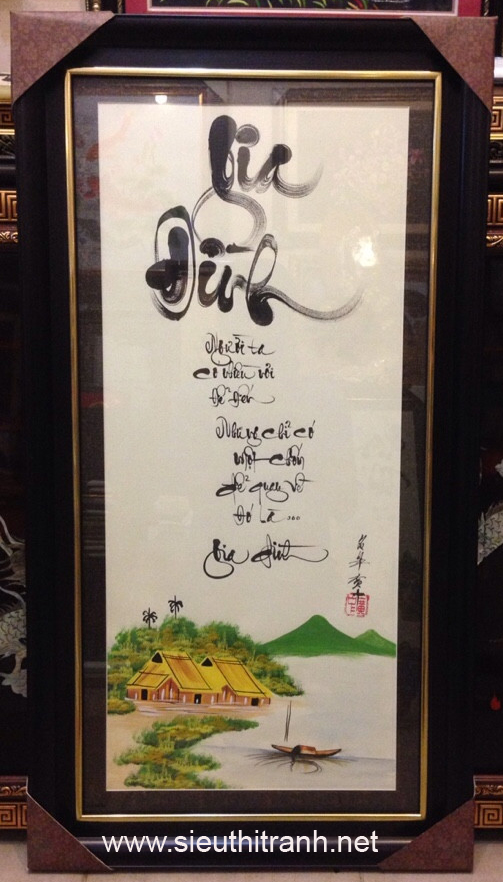 Gia
Đình
Người ta
có nhiều nơi
để đến
Nhưng chỉ có
một chốn
để quay về
đó là...
Gia đình
www.sieuthitranh.net